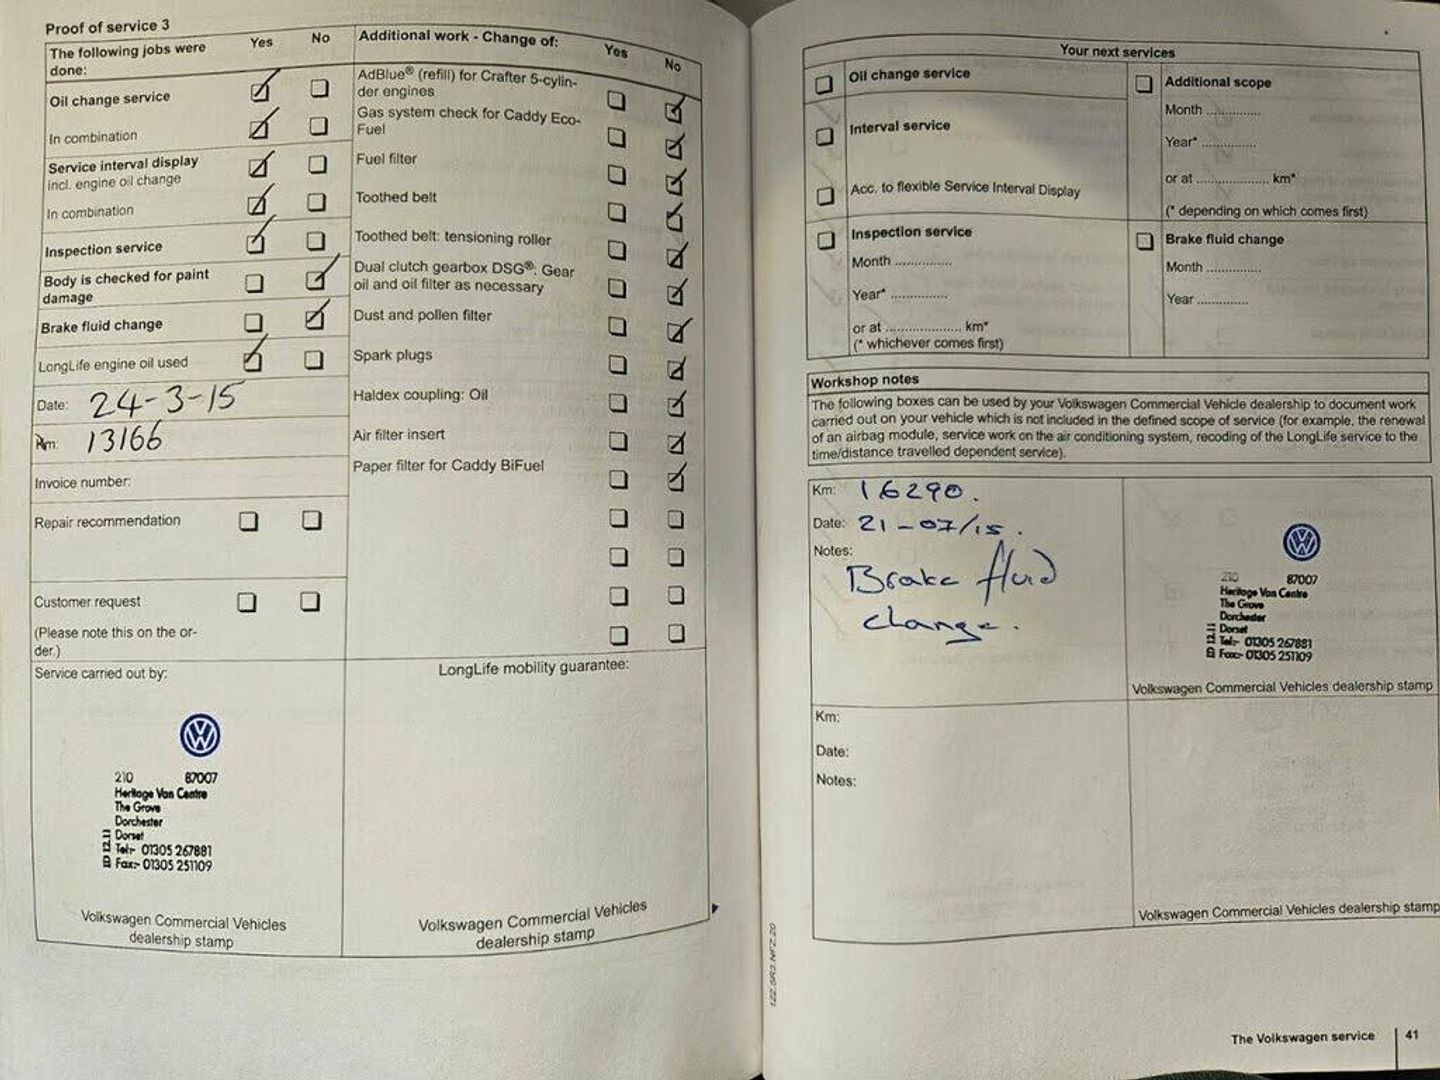 Proof of service 3
The following jobs were
done:
Yes
No
Oil change service
In combination
Service interval display
incl. engine oil change
In combination
Inspection service
Body is checked for paint
damage
Brake fluid change
LongLife engine oil used
Date: 24-3-15
Km: 13166
Invoice number:
Repair recommendation
Customer request
(Please note this on the or-
der.)
Service carried out by:
210 87007
Heritage Van Centre
The Grove
Dorchester
Dorset
Tel:- 01305 267881
Fax:- 01305 251109
Volkswagen Commercial Vehicles
dealership stamp
Additional work - Change of:
Yes
No
AdBlue® (refill) for Crafter 5-cylin-
der engines
Gas system check for Caddy Eco-
Fuel
Fuel filter
Toothed belt
Toothed belt: tensioning roller
Dual clutch gearbox DSG®: Gear
oil and oil filter as necessary
Dust and pollen filter
Spark plugs
Haldex coupling: Oil
Air filter insert
Paper filter for Caddy BiFuel
LongLife mobility guarantee:
Volkswagen Commercial Vehicles
dealership stamp
Your next services
Oil change service
Interval service
Acc. to flexible Service Interval Display
Inspection service
Month ..............
Year* ..............
or at .................... km*
(* whichever comes first)
Additional scope
Month ..............
Year* ..............
or at .................... km*
(* depending on which comes first)
Brake fluid change
Month ..............
Year ..............
Workshop notes
The following boxes can be used by your Volkswagen Commercial Vehicle dealership to document work
carried out on your vehicle which is not included in the defined scope of service (for example, the renewal
of an airbag module, service work on the air conditioning system, recoding of the LongLife service to the
time/distance travelled dependent service).
Km: 16290.
Date: 21-07/15.
Notes:
Brake fluid
change.
210 87007
Heritage Van Centre
The Grove
Dorchester
Dorset
Tel:- 01305 267881
Fax:- 01305 251109
Volkswagen Commercial Vehicles dealership stamp
Km:
Date:
Notes:
Volkswagen Commercial Vehicles dealership stamp
122.5R3.NFZ.20
The Volkswagen service 41